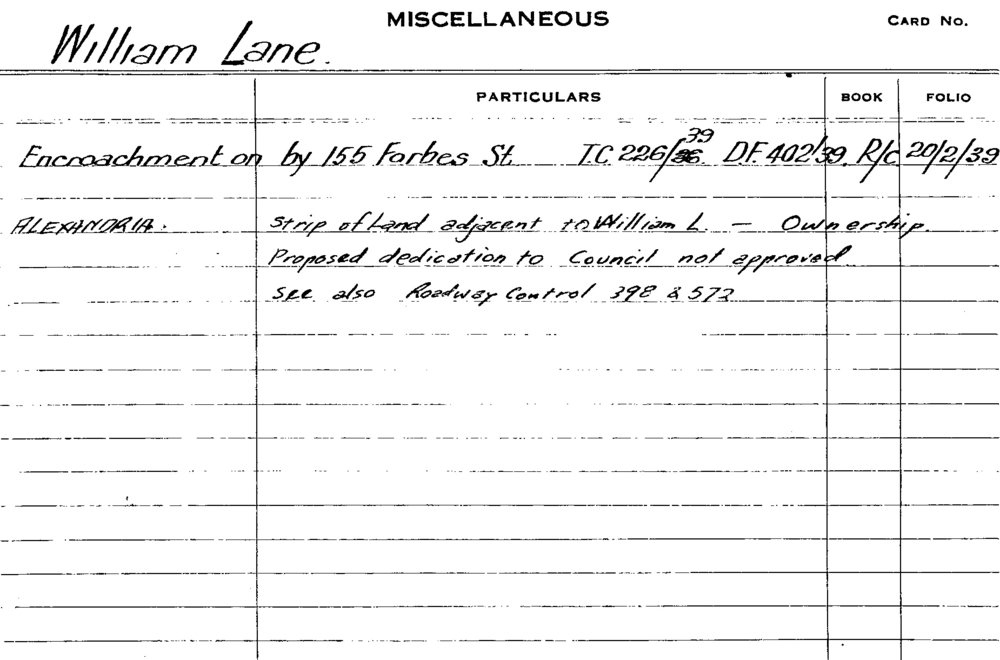 MISCELLANEOUS
CARD NO.
William Lane.
PARTICULARS BOOK FOLIO
39
Encroachment on by 155 Forbes St T.C. 226/36. D.F. 402/39. R/c 20/2/39
ALEXANDRIA. Strip of Land adjacent to William L. — Ownership.
Proposed dedication to Council not approved
See also Roadway Control 398 & 572